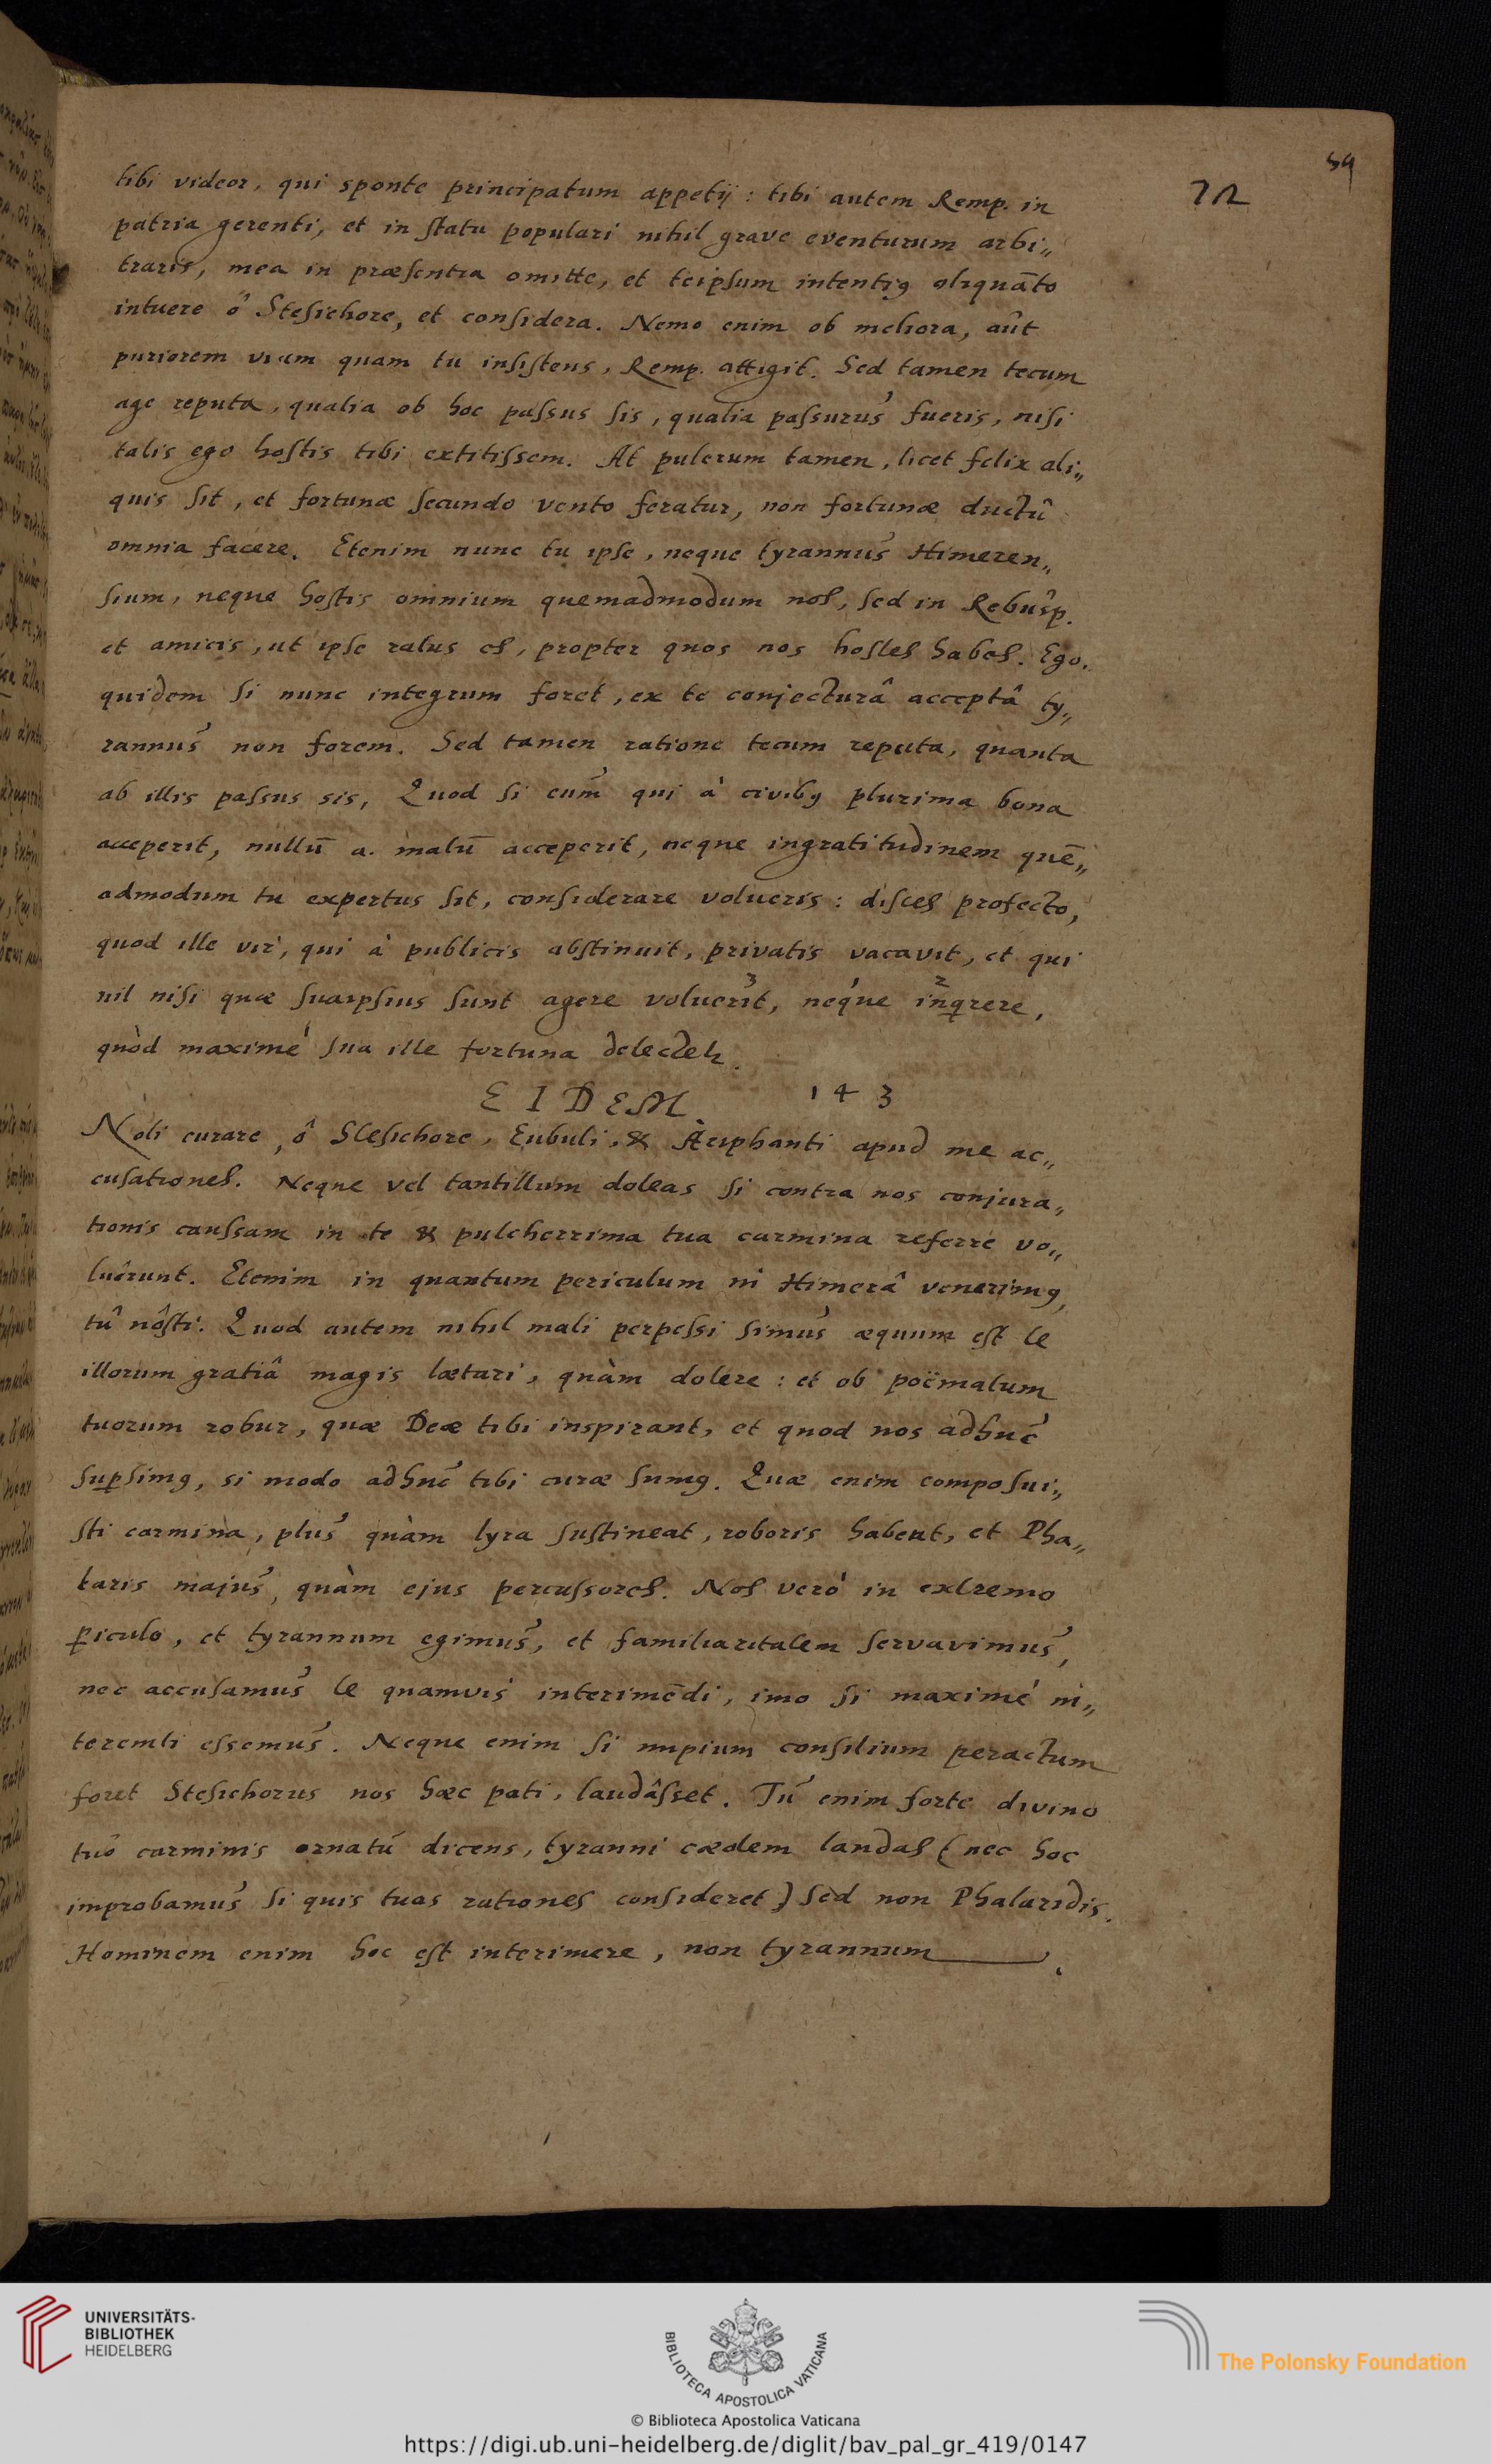 59
72
tibi videor, qui sponte principatum appetij : tibi autem Remp. in
patria gerenti, et in statu populari nihil grave eventurum arbi„
traris, mea in præsentia omitte, et teipsum intentiꝰ aliquāto
intuere ô Stesichore, et considera. Nemo enim ob meliora, aût
puriorem viam quam tu insistens, Remp. attigit. Sed tamen tecum
age reputa, qualia ob hoc passus sis, qualia passurus fueris, nisi
talis ego hostis tibi extitissem. At pulcrum tamen, licet felix ali„
quis sit, et fortunæ secundo vento feratur, non fortunæ ductû
omnia facere. Etenim nunc tu ipse, neque tyrannus Himeren„
sium, neque hostis omnium quemadmodum nos, sed in Rebusp.
et amicis, ut ipse ratus es, propter quos nos hostes habes. Ego.
quidem si nunc integrum foret, ex te conjecturâ acceptâ ty„
rannus non forem. Sed tamen ratione tecum reputa, quanta
ab illis passus sis, Quod si eum qui à civibꝰ plurima bona
acceperit, nullū a. malū acceperit, neque ingratitudinem quē„
admodum tu expertus sit, considerare volueris : disces profecto,
quod ille vir, qui à publicis abstinuit, privatis vacavit, et qui
nil nisi quæ suaipsius sunt agere voluerit, neque inqrere,
quòd maximé sua ille fortuna delectet.
EIDEM. 143
Noli curare, ô Stesichore, Eubuli, & Ariphanti apud me ac„
cusationes. Neque vel tantillum doleas si contra nos conjura„
tionis caussam in te & pulcherrima tua carmina referre vo„
luêrunt. Etenim in quantum periculum ni Himerâ venerimꝰ,
tû nôsti. Quod autem nihil mali perpessi simus æquum est te
illorum gratiâ magis lætari, quàm dolere : et ob poëmatum
tuorum robur, quæ Deæ tibi inspirant, et quod nos adhuc
supsimꝰ, si modo adhuc tibi curæ sumꝰ. Quæ enim composui„
sti carmina, plus quàm lyra sustineat, roboris habent, et Pha„
laris majus, quàm ejus percussores. Nos verò in extremo
piculo, et tyrannum egimus, et familiaritatem servavimus,
nec accusamus te quamvis interimēdi, imo si maximé in„
teremti essemus. Neque enim si impium consilium peractum
foret Stesichorus nos hæc pati, laudâsset. Tu enim forte divino
tuo carminis ornatu dicens, tyranni cædem laudas (nec hoc
improbamus si quis tuas rationes consideret) sed non Phalaridis.
Hominem enim hoc est interimere, non tyrannum.
UNIVERSITÄTS-
BIBLIOTHEK
HEIDELBERG
BIBLIOTECA APOSTOLICA VATICANA
The Polonsky Foundation
© Biblioteca Apostolica Vaticana
https://digi.ub.uni-heidelberg.de/diglit/bav_pal_gr_419/0147